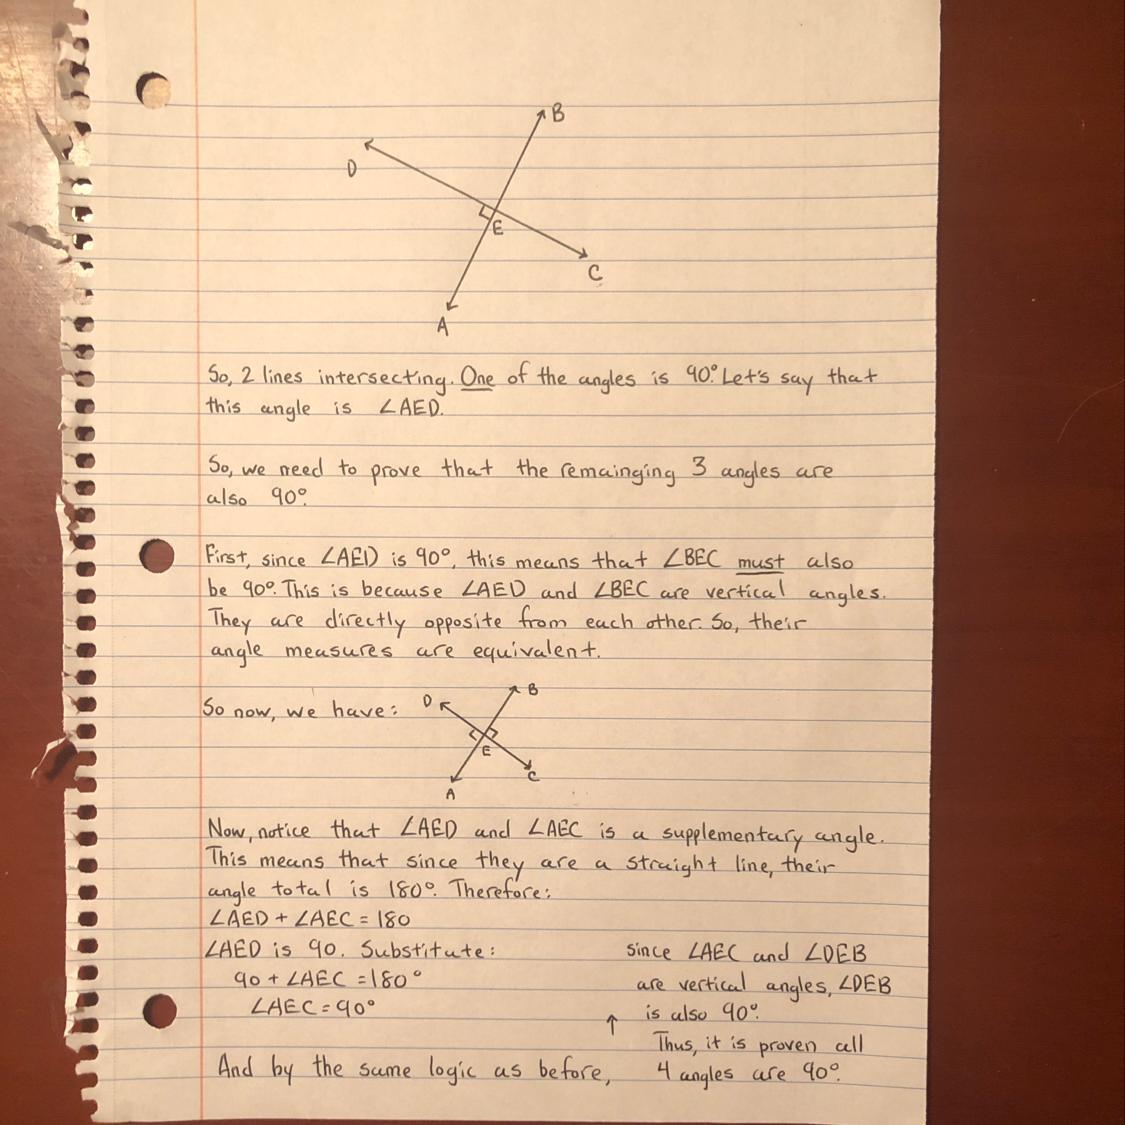 B
D
E
C
A
So, 2 lines intersecting. One of the angles is 90°. Let's say that
this angle is ∠AED.
So, we need to prove that the remainging 3 angles are
also 90°.
First, since ∠AED is 90°, this means that ∠BEC must also
be 90°. This is because ∠AED and ∠BEC are vertical angles.
They are directly opposite from each other. So, their
angle measures are equivalent.
So now, we have:
D
B
E
C
A
Now, notice that ∠AED and ∠AEC is a supplementary angle.
This means that since they are a straight line, their
angle total is 180°. Therefore:
∠AED + ∠AEC = 180
∠AED is 90. Substitute:
90 + ∠AEC = 180°
∠AEC = 90°
And by the same logic as before,
since ∠AEC and ∠DEB
are vertical angles, ∠DEB
is also 90°.
Thus, it is proven all
4 angles are 90°.